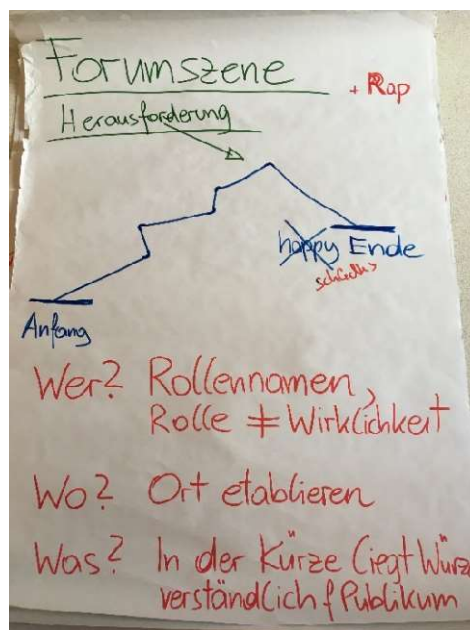 Forumszene
+ Rap
Herausforderung
happy Ende
schlecht>
Anfang
Wer? Rollennamen,
Rolle ≠ Wirklichkeit
Wo? Ort etablieren
Was? In der Kürze liegt Würze
verständlich f Publikum